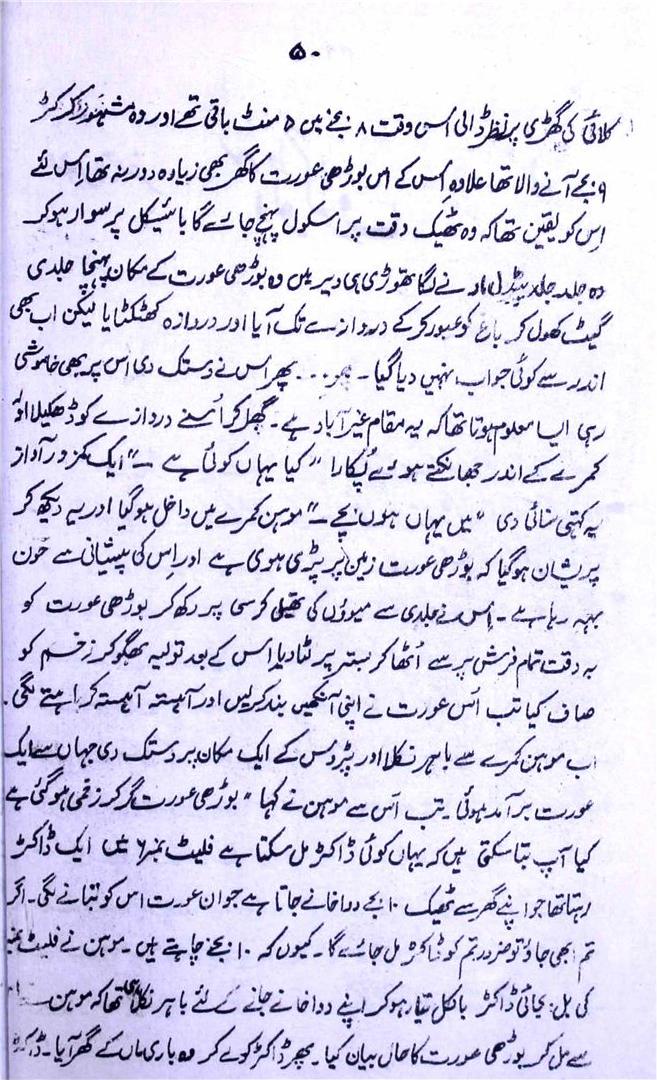 ۵۰
کلائی کی گھڑی پر نظر ڈالی اس وقت ۸ بجنے میں ۵ منٹ باقی تھے اور وہ مشہور کرکٹر
۹ بجے آنے والا تھا علاوہ اِس کے اس بوڑھی عورت کا گھر بھی زیادہ دور نہ تھا اِس لئے
اِس کو یقین تھا کہ وہ ٹھیک وقت پر اسکول پہنچ جائے گا بائیسکل پر سوار ہو کر
وہ جلد جلد پیڈل مارنے لگا تھوڑی ہی دیر میں وہ بوڑھی عورت کے مکان پہنچا جلدی
گیٹ کھول کر باغ کو عبور کر کے دروازے تک آیا اور دروازہ کھٹکٹایا لیکن اب بھی
اندر سے کوئی جواب نہیں دیا گیا ۔ پھر ... پھر اس نے دستک دی اس پر بھی خاموشی
رہی ایسا معلوم ہوتا تھا کہ یہ مقام غیر آباد ہے ۔ گھل کر اُسنے دروازے کو ڈھکیلا اور
کمرے کے اندر جھانکتے ہوئے پُکارا " کیا یہاں کوئی ہے ـ" ایک کمزور آواز
یہ کہتی سنائی دی " میں یہاں ہوں بچے ـ" موہن کمرے میں داخل ہو گیا اور یہ دیکھ کر
پریشان ہو گیا کہ بوڑھی عورت زمین پر پڑی ہوی ہے اور اِس کی پیشانی سے خون
بہہ رہا ہے ۔ اِس نے جلدی سے میوؤں کی تھیلی کرسی پر رکھ کر بوڑھی عورت کو
بہ دقت تمام فرش پر سے اُٹھا کر بستر پر لٹا دیا اِس کے بعد تولیہ بھگو کر زخم کو
صاف کیا تب اس عورت نے اپنی آنکھیں بند کر لیں اور آہستہ آہستہ کراہنے لگی ۔
اب موہن کمرے سے باہر نکلا اور پڑوس کے ایک مکان پر دستک دی جہاں سے ایک
عورت برآمد ہوئی تب اس سے موہن نے کہا " بوڑھی عورت گر کر زخمی ہو گئی ہے
کیا آپ بتا سکتی ہیں کہ یہاں کوئی ڈاکٹر مل سکتا ہے فلیٹ نمبر ۶ میں ایک ڈاکٹر
رہتا تھا جو اپنے گھر سے ٹھیک ۱۰ بجے دواخانے جاتا ہے جوان عورت اس کو بتانے لگی ۔ اگر
تم ابھی جاؤ تو ضرور تم کو ڈاکٹر مل جائے گا ۔ کیوں کہ ۱۰ بجنے چاہتے ہیں ۔ موہن نے فلیٹ نمبر
کی بل بجائی ڈاکٹر بالکل تیار ہو کر اپنے دواخانے جانے کے لئے باہر نکل رہا تھا کہ موہن
سے مل کر بوڑھی عورت کا حال بیان کیا ۔ پھر ڈاکٹر کو لے کر وہ باری ماں کے گھر آیا ۔ ڈاکٹر